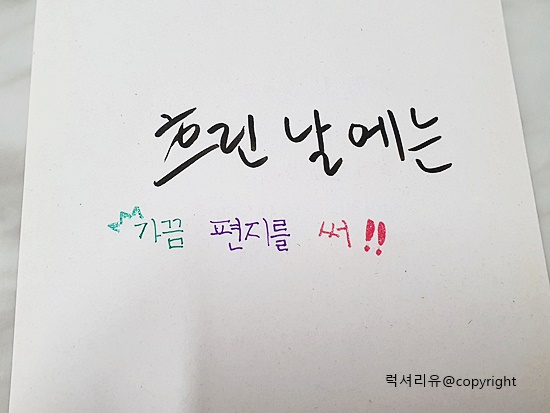 흐린 날에는
가끔 편지를 써!!
럭셔리유@copyright